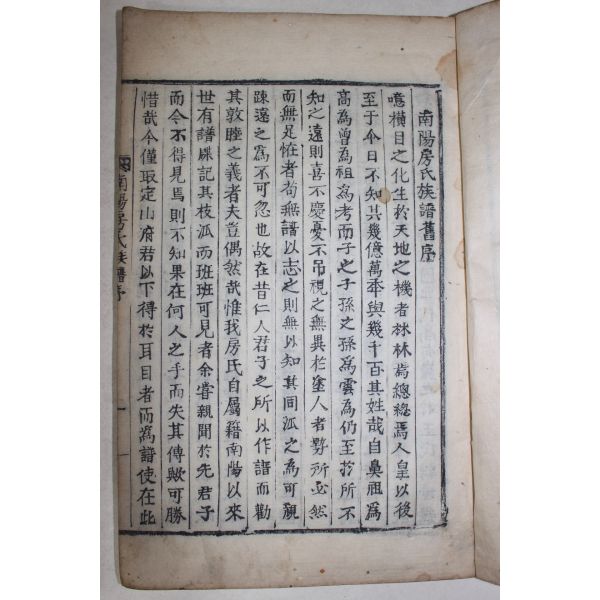 南陽房氏族譜舊序
噫橫目之化生於天地之機者林林焉總總焉人皇以後
至于今日不知其幾億萬年與幾千百其姓哉自鼻祖爲
高爲曾爲祖爲考而子之子孫之孫爲雲爲仍至於所不
知之遠則喜不慶憂不吊視之無異於塗人者勢所必然
而無足恠者苟無譜以志之則無以知其同派之爲可親
踈遠之爲不可忽也故在昔仁人君子之所以作譜而勸
其敦睦之義者夫豈偶然哉惟我房氏自屬籍南陽以來
世有譜牒記其枝派而班班可見者余嘗親聞於先君子
而今不得見焉則不知果在何人之手而失其傳歟可勝
惜哉今僅取定山府君以下得於耳目者而爲譜使在此
南陽房氏族譜序
一